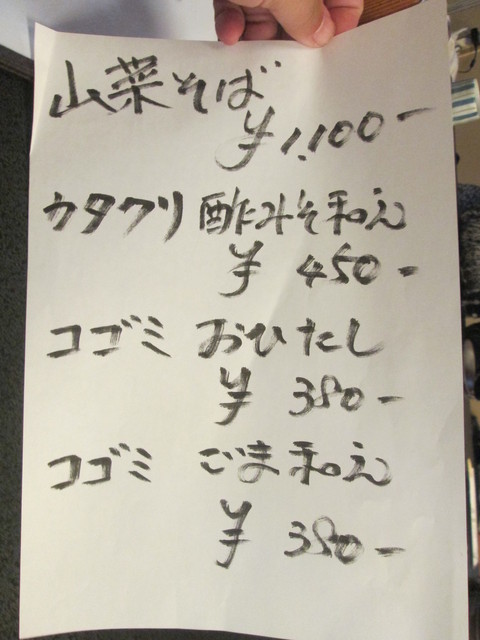 山菜そば
¥1,100-
カタクリ 酢みそ和え
¥ 450-
コゴミ おひたし
¥ 380-
コゴミ ごま和え
¥ 380-